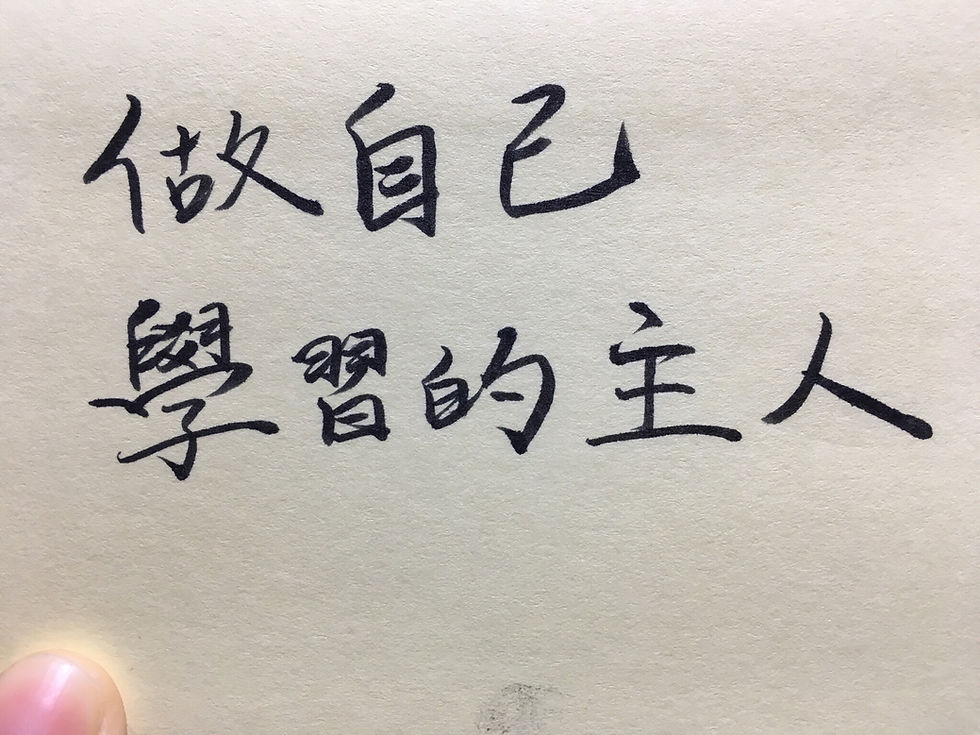 做自己
學習的主人